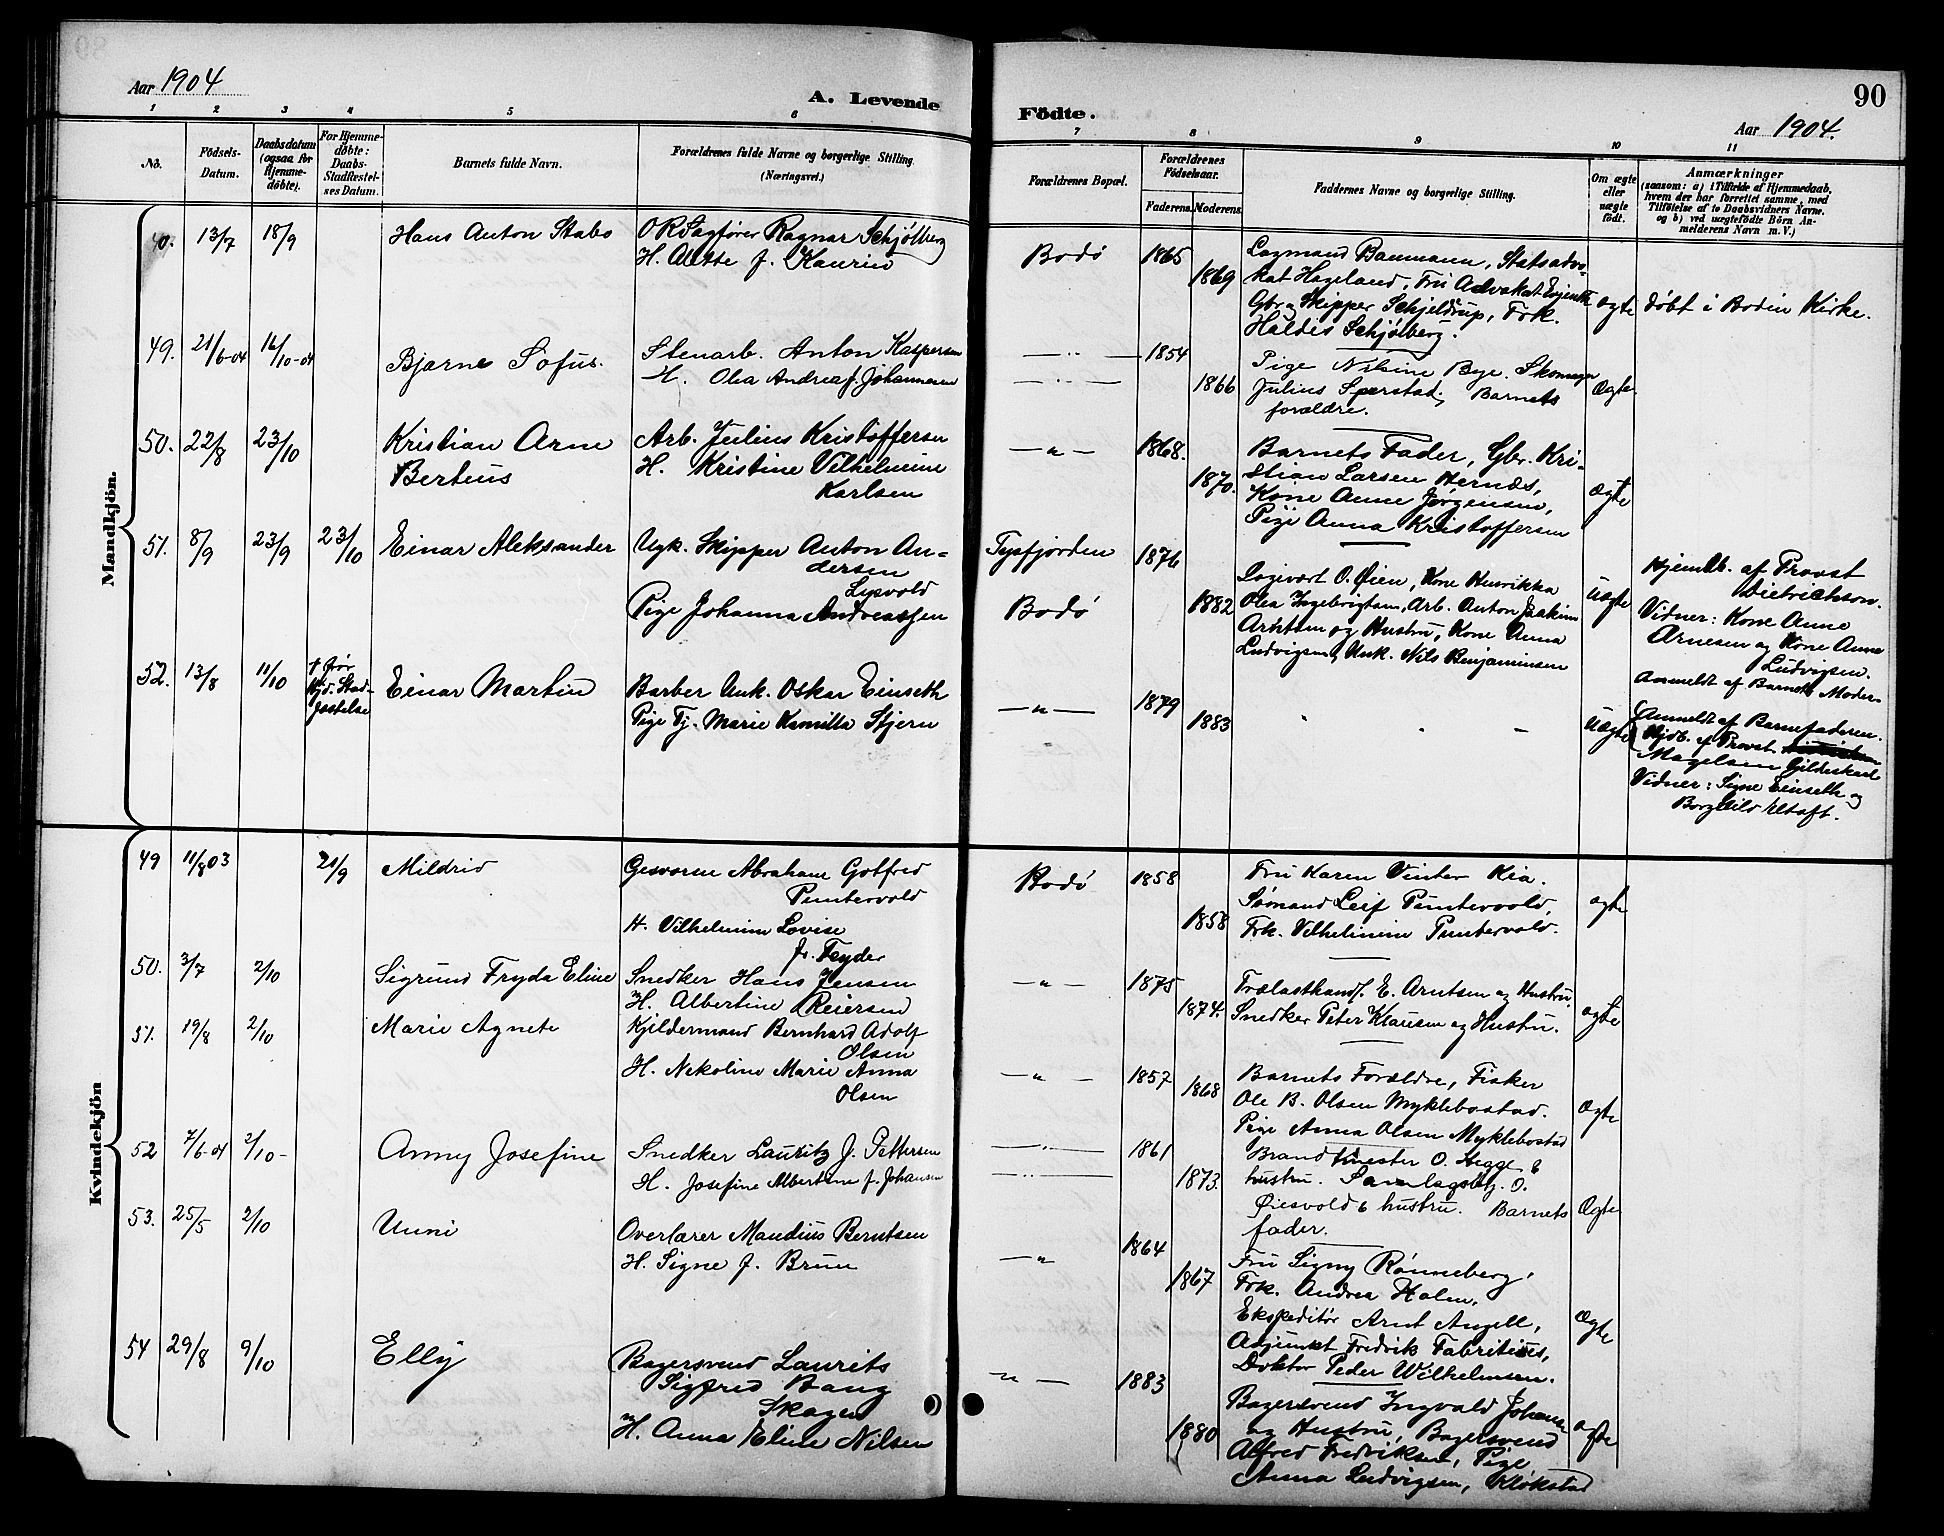 Aar 1904
A. Levende
1 2 3 4 5 6
No.
Födsels-
Datum.
Daabsdatum
(ogsaa for
Hjemme-
døbte).
For Hjemme-
døbte:
Daabs-
Stadfæstel-
ses Datum.
Barnets fulde Navn.
Forældrenes fulde Navne og borgerlige Stilling.
(Næringsvei.)
Mandkjön.
13/7 18/9 Hans Anton Stabo
ORSagfører Ragnar Schjølberg
H. Aette f. Kaurin
49. 21/6-04 16/10-04 Bjarne Sofus.
Stenarb. Anton Kaspersen
H. Olea Andrea f. Johannesen
50. 22/8 23/10 Kristian Arne
Berteus
Arb. Julius Kristoffersen
H. Kristine Vilhelmine
Karlsen
51. 8/9 23/9 23/10 Einar Aleksander
Ugk. Skipper Anton An-
dersen
Lysvold
Pige Johanna Andreassen
52. 13/8 11/10 † før
Hjd. Stad-
fæstelse
Einar Martin
Barber Unk. Oskar Einseth
Pige Tj. Marie Kamilla Stjern
Kvindekjön
49 11/8 03 21/9 Mildrid
Gesvoren Abraham Gotfred
Puntervold
H. Vilhelmine Lovise
f. Feyder
50. 3/7 2/10 Sigrund Fryda Eline
Snedker Hans Jensen
H. Albertine Reiersen
51. 19/8 2/10 Marie Agnete
Kjeldermand Bernhard Adolf
Olsen
H. Nekoline Marie Anna
Olsen
52 7/6-04 2/10- Anny Josefine
Snedker Lauritz J. Pettersen
H. Josefine Albertine f. Johansen
53. 25/5 2/10 Unni
Overlærer Maudius Berntsen
H. Signe f. Brun
54 29/8 9/10 Elly
Bagersvend Laurits
Sigfred Bang
Skagen
H. Anna Eline Nilsen
Födte.
90
Aar 1904.
7 8 9 10 11
Forældrenes Bopæl.
Forældrenes
Födselsaar.
Faderens. Moderens.
Faddernes Navne og borgerlige Stilling.
Om ægte
eller
uægte
født.
Anmærkninger
(saasom: a) i Tilfælde af Hjemmedaab,
hvem der har forrettet samme, med
Tilføielse af to Daabsvidners Navne,
og b) ved uægtefødte Börn An-
melderens Navn m. V.)
Bodø 1865
1869
Lagmand Baumann, Statsadvo-
kat Hageland, Fru Advokat Evjenth
Gbr. Skipper Schjeldrup, Frk.
Haldis Schjølberg.
ægte
døbt i Bodin Kirke.
— „ — 1854
— „ — 1866
Pige Nilsine Bye. Skomager
Julius Sperstad, Barnets
forældre.
Ægte
— „ — 1868.
1870.
Barnets Fader, Gbr. Kri-
stian Larsen Hernes,
Kone Anne Jørgensen,
Pige Anna Kristoffersen
ægte
Tysfjorden 1876
Bodø 1882
Logivert O. Øien, Kone Henrikka
Olea Ingebrigtsen, Arb. Anton Joakim
Arntsen og Hustru, Kone Anna
Ludvigsen, Unk. Nils Benjaminsen
Uægte
Hjemdb. af Provst
Dietrichson.
Vidner: Kone Anne
Arnesen og Kone Anna
Ludvigsen.
Anmeldt af Barnets Moder
— „ — 1879
1883
Uægte
Anmeldt af Barnefaderen.
Hjdb. af Provst
Magelsen Gildeskaal
Vidner: Signe Einseth og
Borghild Eltoft.
Bodø 1858
1858
Fru Karen Vinter Kia.
Sømand Leif Puntervold,
Frk. Vilhelmine Puntervold.
ægte
— „ — 1875
1874.
Trælasthandl. E. Arntsen og Hustru,
Snedker Peter Klausen og Hustru.
ægte
— „ — 1857
1868
Barnets Forældre, Fisker
Ole B. Olsen Myklebostad.
Pige Anna Olsen Myklebostad
Ægte
— „ — 1861
— „ — 1873.
Brandmester O. Hegge &
hustru. Samlagsbetj. O.
Øiesvold & hustru. Barnets
fader.
Ægte
— „ 1864
1867
Fru Signy Rønneberg,
Frk. Andrea Holm,
Ekspeditør Arnt Angell,
Adjunkt Fredrik Fabritius,
Doktor Peder Wilhelmsen.
Ægte
— „ — 1883
1880
Bagersvend Ingvald Johansen
og Hustru, Bagersvend
Alfred Fredriksen, Pige
Anna Ludvigsen, Kløkstad
ægte